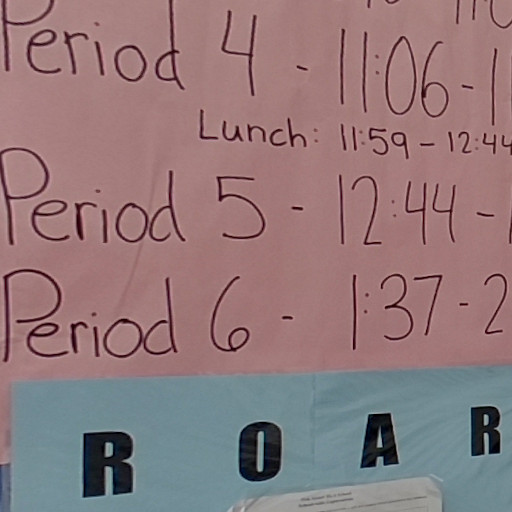 Period 4 - 11:06 - 1
Lunch: 11:59 - 12:44
Period 5 - 12:44 -
Period 6 - 1:37 - 2
R O A R